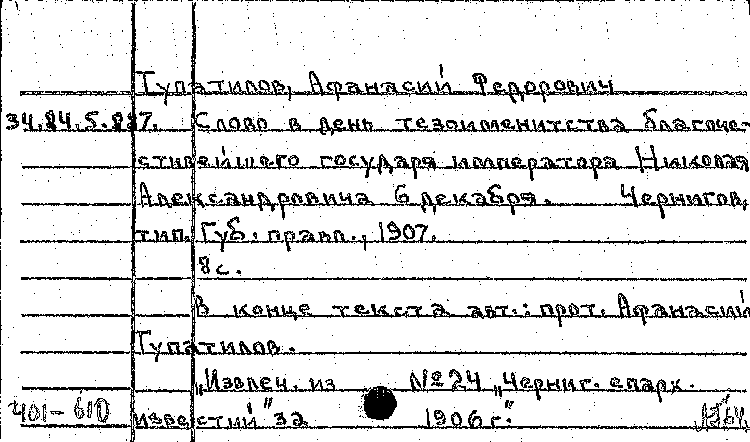 Тупатилов, Афанасий Федорович
34.84.5.887. Слово в день тезоименитства благоче-
стивейшего государя императора Николая
Александровича 6 декабря. Чернигов,
тип. Губ. правл., 1907.
8 с.
В конце текста авт.: прот. Афанасий
Тупатилов.
„Извлеч. из №24 „Черниг. епарх.
401-610 известий" за 1906 г."